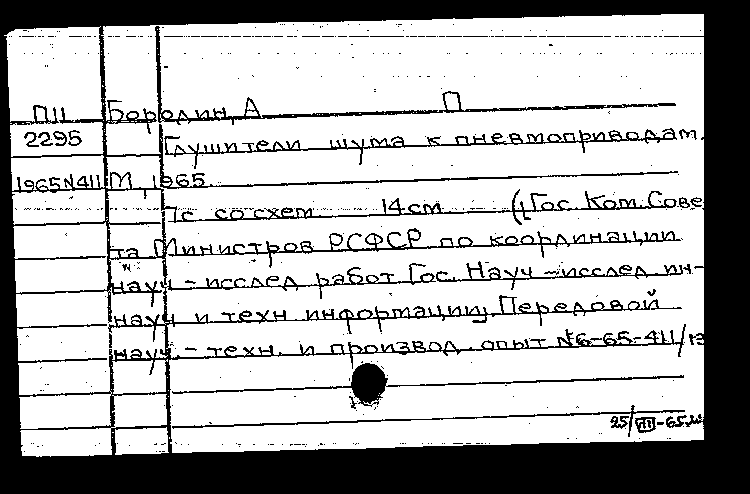 П11 Бородин, А П
2295 Глушители шума к пневмоприводам.
1965N411 М, 1965
7с со схем 14 см (Гос. Ком. Сове
та Министров РСФСР по координации
науч - исслед работ Гос. Науч - исслед ин-
науч и техн информации, Передовой
науч. - техн. и производ. опыт №6-65-411/
25/VIII-65.